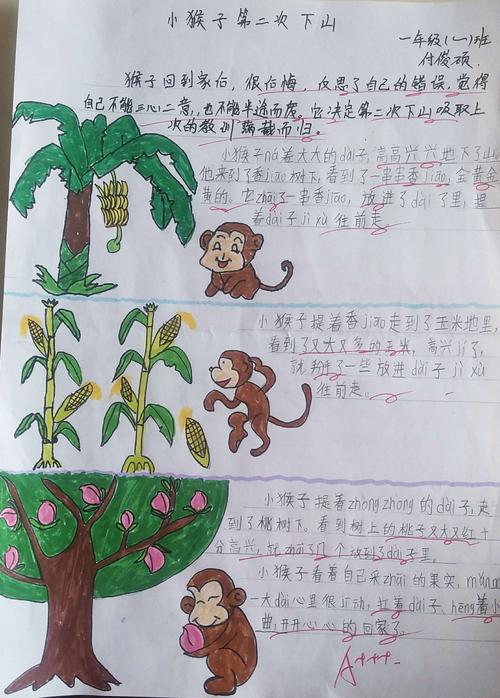 小猴子第二次下山
一年级(一)班
付俊硕
猴子回到家后，很后悔，反思了自己的错误，觉得
自己不能三心二意，也不能半途而废。它决定第二次下山吸取上
次的教训满载而归。
小猴子ná着大大的dài子，高高兴兴地下了山
他来到了香jiāo树下，看到了一串串香jiāo，金黄金
黄的。它zhāi了一串香jiāo，放进了dài了里，提
着dài子jì xù往前走。
小猴子提着香jiāo走到了玉米地里，
看到了又大又多的玉米，高兴jí了，
就掰了一些放进dài子jì xù
往前走。
小猴子提着zhòng zhòng的dài子，走
到了桃树下。看到树上的桃子又大又红十
分高兴，就zhāi了几个放到了dài子里。
小猴子看着自己采zhāi的果实，mǎn mǎn
一大dài心里很jī动，扛着dài子、hēng着小
曲，开开心心的回家了。
A+++